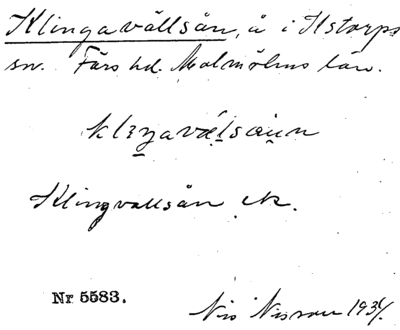 Klingavällsån, å i Ilstorps
sn. Färs hd. Malmöhus län.
Klingvallsån ek.
Nr 5583.
Nils Nilsson 1934.